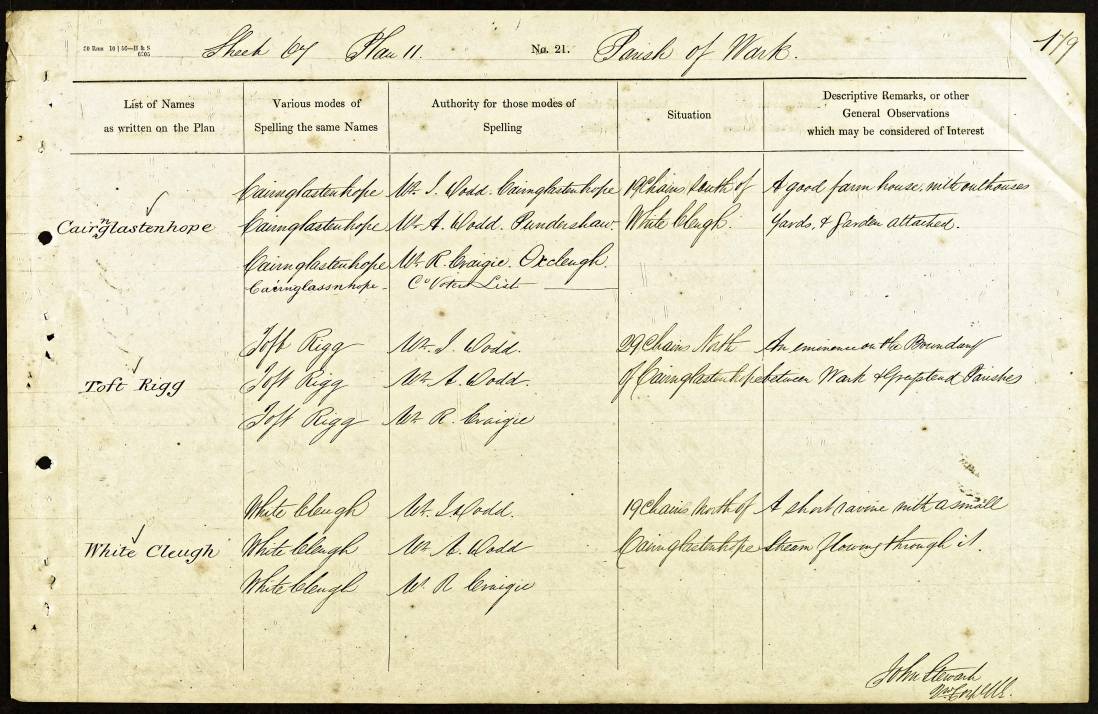 20 Rms 10 | 56—H & S
6205
Sheet 67 Plan 11. No. 21. Parish of Wark. 179
List of Names
as written on the Plan
Various modes of
Spelling the same Names
Authority for those modes of
Spelling
Situation
Descriptive Remarks, or other
General Observations
which may be considered of Interest
Cairnglastenhope
Cairnglastenhope Mr. J. Dodd. Cairnglastenhope 19 Chains South of A good farm house, with outhouses
Cairnglastenhope Mr. A. Dodd. Pundershaw. White Cleugh. Yards, & Garden attached.
Cairnglastenhope Mr. R. Craigie. Oxcleugh.
Cairnglassnhope. Co. Voters List
Toft Rigg
Toft Rigg Mr. J. Dodd. 29 Chains North An eminence on the Boundary
Toft Rigg Mr. A. Dodd. of Cairnglastenhope between Wark & Greystead Parishes
Toft Rigg Mr. R. Craigie
White Cleugh
White Cleugh Mr. J. Dodd. 19 Chains North of A short ravine with a small
White Cleugh Mr. A. Dodd Cairnglastenhope Stream flowing through it.
White Cleugh Mr. R Craigie
John Stewart